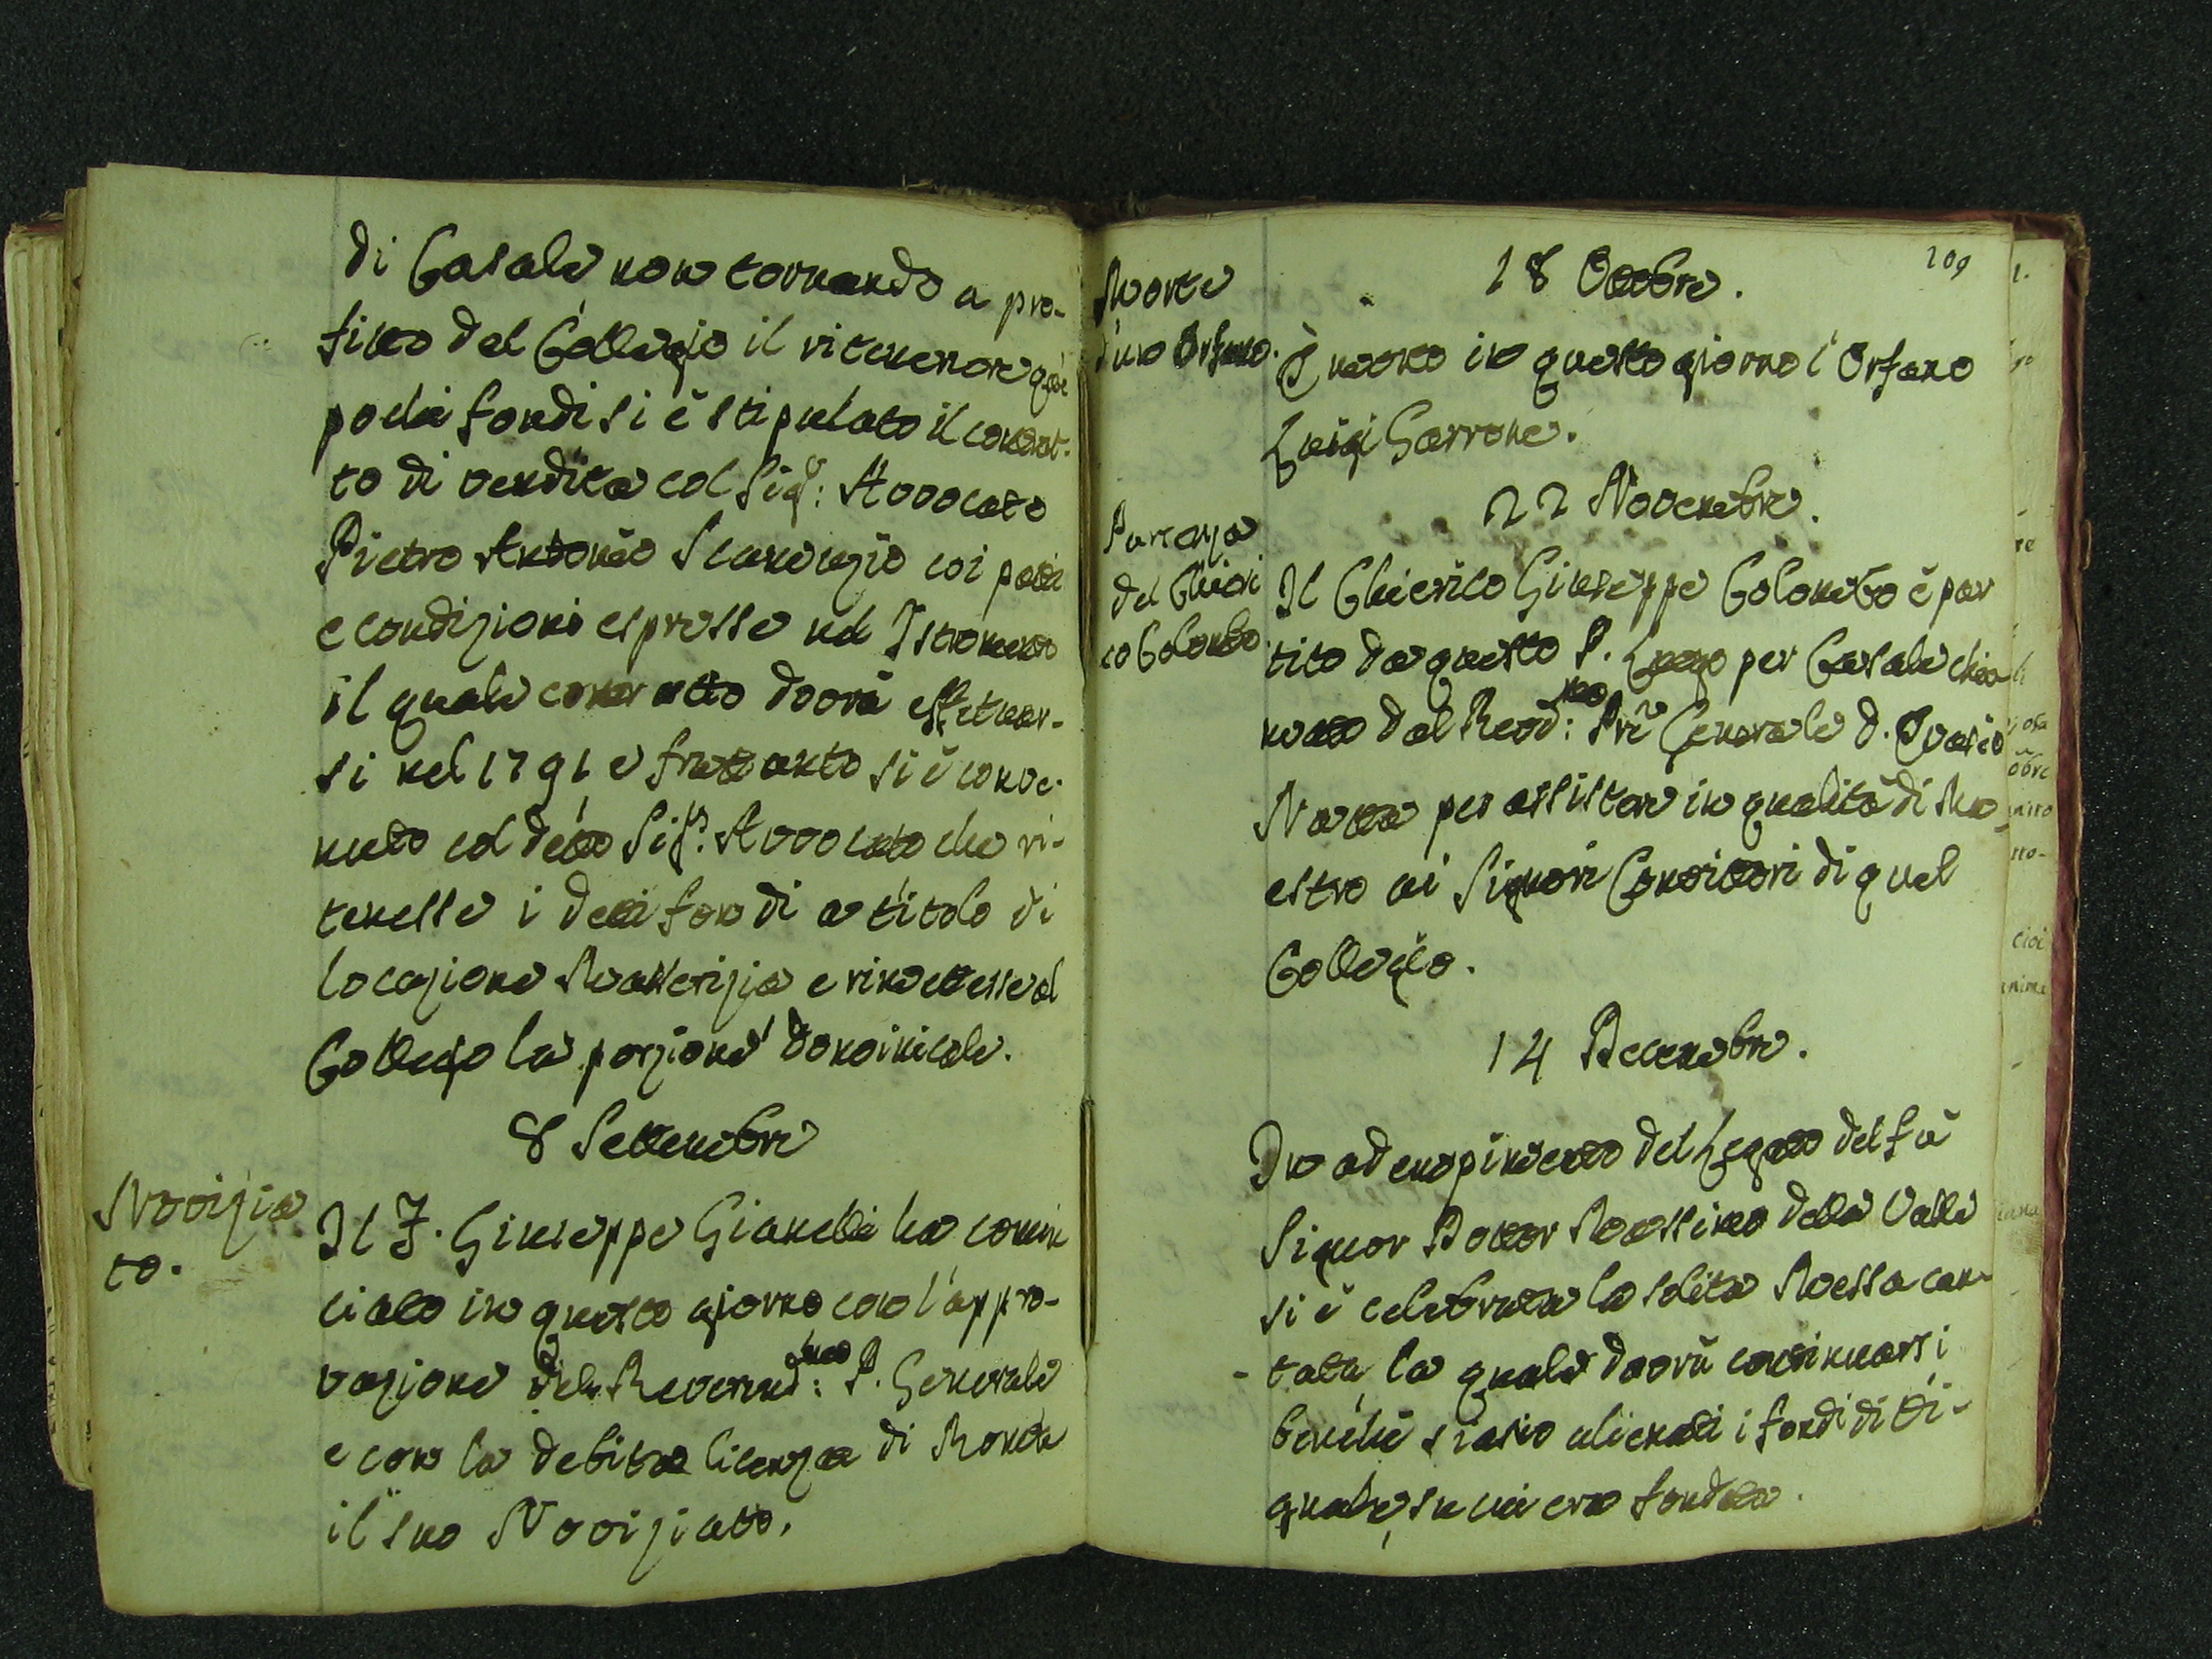 di Casale non tornando a pro-
fitto del Collegio il ritenere que
pochi fondi si è stipulato il contrat-
to di vendita col Sigr: Avvocato
Pietro Antonio Scamuzio coi patti
e condizioni espresse nel Istromento
il quale contratto dovrà effetuar-
si nel 1791 e frattanto si è conve-
nuto col detto Sigr: Avvocato che ri-
tenesse i detti fondi a titolo di
locazione Masserizia e rimettesse al
Collegio la porzione dominicale.
8 Settembre
Novizia
to.
Il F. Giuseppe Gianelli ha comin
ciato in questo giorno con l'appro-
vazione del Reverend:mo P. Generale
e con la debita licenza di Roma
il suo Noviziato.
209
Morte
d'uno Orfano.
18 Ottobre.
È morto in questo giorno l'Orfano
Luigi Garrone.
22 Novembre.
Partenza
del Chieri
co Colombo
Il Chierico Giuseppe Colombo è par
tito da questo P. Luogo per Casale chia
mato dal Revd:mo Pre Generale D. Evasio
Natta per assistere in qualità di Ma
estro ai Signori Convittori di quel
Collegio.
14 Decembre.
In adempimento del Legato del fù
Signor Dottor Massimo della Valle
si è celebrata la solita Messa can-
tata la quale dovrà continuarsi
benché siano alienati i fondi di Ti-
quale, su cui era fondata.